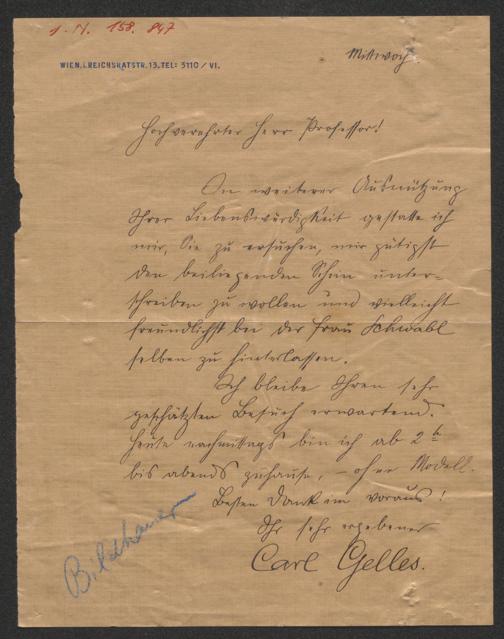 J. N. 158.847
WIEN, I. REICHSRATSTR. 13. TEL: 5110 / VI.
Mittwoch
Hochverehrter Herr Professor!
In weiterer Ausnützung
Ihrer Liebenswürdigkeit gestatte ich
mir, Sie zu ersuchen, mir gütigst
den beiliegenden Schein unter-
schreiben zu wollen und vielleicht
freundlichst bei der Frau Schwabl
selben zu hinterlassen.
Ich bleibe Ihren sehr
geschätzten Besuch erwartend.
Heute nachmittags bin ich ab 2 h
bis abends zuhause, – ohne Modell.
Besten Dank im voraus!
Ihr sehr ergebener
Carl Gelles.
Bildhauer